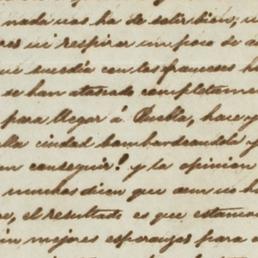 nada nos ha de salir bien, n
res ni respirar un poco de a
ue suerdia con los franceses h
se han atasado completame
para llegar á Puebla, hace y
lla ciudad bombardeandola y
en conseguir! y la opinion
muchos dicen que aun no ha
o, el resultado es que estamo
in mejores esperanzas para